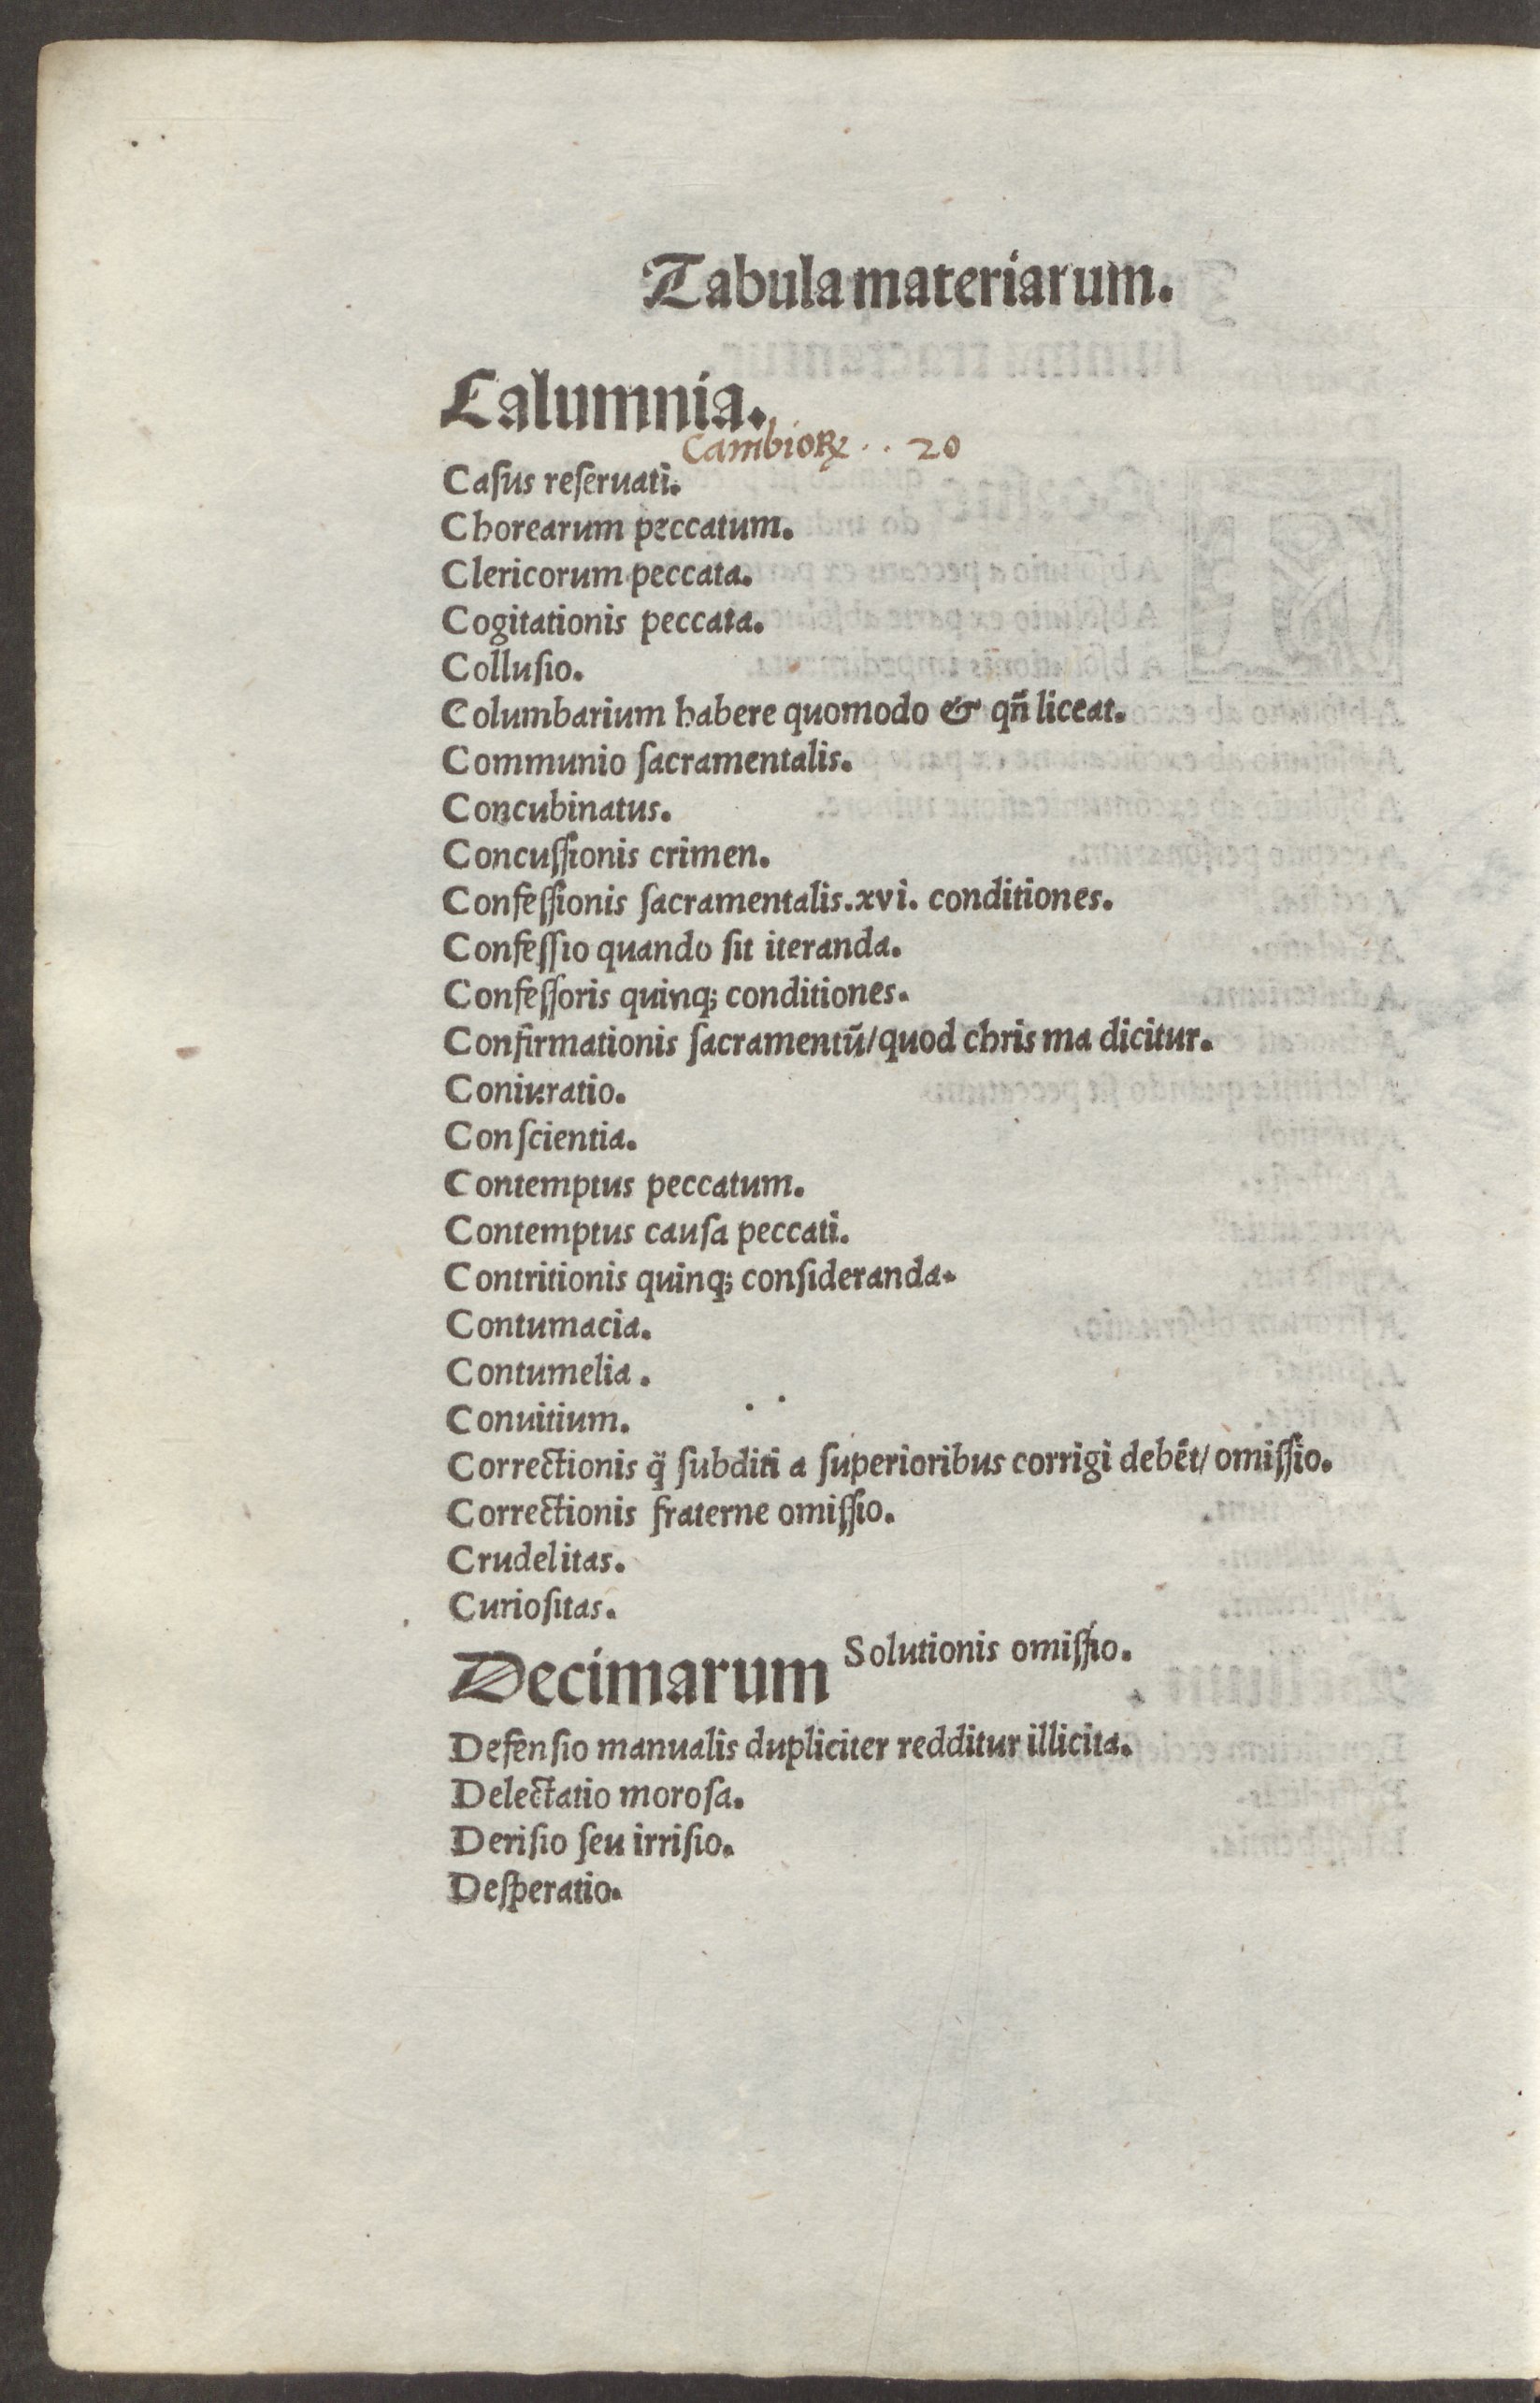 Tabula materiarum.
Calumnia.
Cambioꝝ · · 20
Caſus reſeruati.
Chorearum peccatum.
Clericorum peccata.
Cogitationis peccata.
Colluſio.
Columbarium habere quomodo & qñ liceat.
Communio ſacramentalis.
Concubinatus.
Concuſſionis crimen.
Confeſſionis ſacramentalis.xvi. conditiones.
Confeſſio quando ſit iteranda.
Confeſſoris quinqꝫ conditiones.
Confirmationis ſacramentū/quod chriſma dicitur.
Coniuratio.
Conſcientia.
Contemptus peccatum.
Contemptus cauſa peccati.
Contritionis quinqꝫ conſideranda.
Contumacia.
Contumelia.
Conuitium.
Correctionis q̃ ſubditi a ſuperioribus corrigi debēt/ omiſſio.
Correctionis fraterne omiſſio.
Crudelitas.
Curioſitas.
Decimarum Solutionis omiſſio.
Defenſio manualis dupliciter redditur illicita.
Delectatio moroſa.
Deriſio ſeu irriſio.
Deſperatio.